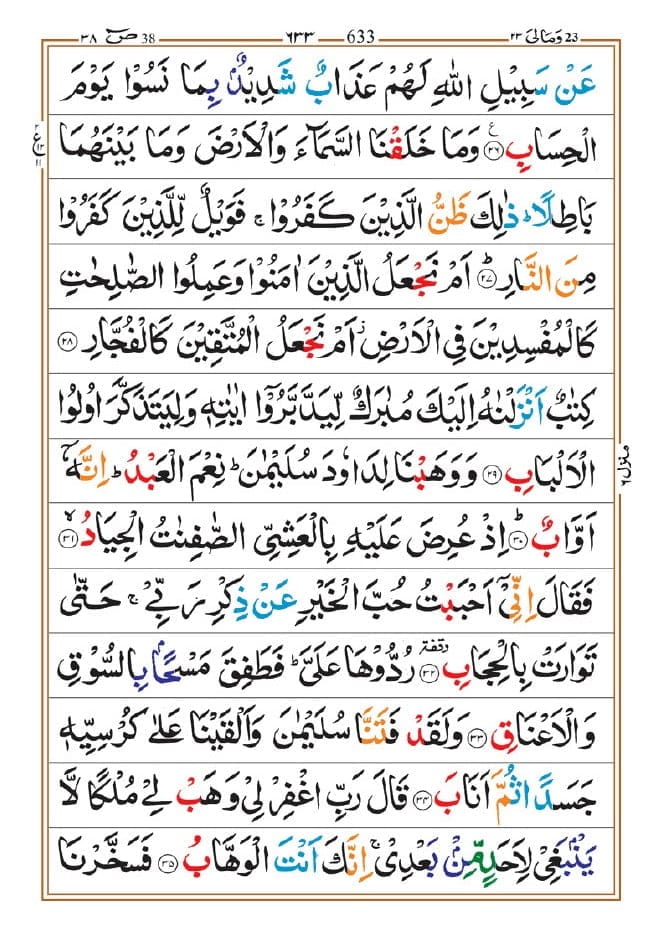 ص ٣٨ 38 ٦٣٣ 633 ومالی ٢٣ 23
عَنْ سَبِیْلِ اللّٰهِ لَهُمْ عَذَابٌ شَدِیْدٌۢ بِمَا نَسُوْا یَوْمَ
الْحِسَابِ ﴿۲۶﴾ وَمَا خَلَقْنَا السَّمَآءَ وَالْاَرْضَ وَمَا بَیْنَهُمَا
بَاطِلًا ؕ ذٰلِكَ ظَنُّ الَّذِیْنَ كَفَرُوْا ۚ فَوَیْلٌ لِّلَّذِیْنَ كَفَرُوْا
مِنَ النَّارِ ﴿۲۷﴾ ؕ اَمْ نَجْعَلُ الَّذِیْنَ اٰمَنُوْا وَعَمِلُوا الصّٰلِحٰتِ
كَالْمُفْسِدِیْنَ فِی الْاَرْضِ ؗ اَمْ نَجْعَلُ الْمُتَّقِیْنَ كَالْفُجَّارِ ﴿۲۸﴾
كِتٰبٌ اَنْزَلْنٰهُ اِلَیْكَ مُبٰرَكٌ لِّیَدَّبَّرُوْۤا اٰیٰتِهٖ وَلِیَتَذَكَّرَ اُولُوا
الْاَلْبَابِ ﴿۲۹﴾ وَوَهَبْنَا لِدَاوٗدَ سُلَیْمٰنَ ؕ نِعْمَ الْعَبْدُ ؕ اِنَّهٗۤ
اَوَّابٌ ﴿۳۰﴾ ؕ اِذْ عُرِضَ عَلَیْهِ بِالْعَشِیِّ الصّٰفِنٰتُ الْجِیَادُ ﴿۳۱﴾ ۙ
فَقَالَ اِنِّیْۤ اَحْبَبْتُ حُبَّ الْخَیْرِ عَنْ ذِكْرِ رَبِّیْ ۚ حَتّٰی
تَوَارَتْ بِالْحِجَابِ ﴿۳۲﴾ وقفة رُدُّوْهَا عَلَیَّ ؕ فَطَفِقَ مَسْحًۢا بِالسُّوْقِ
وَالْاَعْنَاقِ ﴿۳۳﴾ وَلَقَدْ فَتَنَّا سُلَیْمٰنَ وَاَلْقَیْنَا عَلٰی كُرْسِیِّهٖ
جَسَدًا ثُمَّ اَنَابَ ﴿۳۴﴾ قَالَ رَبِّ اغْفِرْ لِیْ وَهَبْ لِیْ مُلْكًا لَّا
یَنْۢبَغِیْ لِاَحَدٍ مِّنْۢ بَعْدِیْ ۚ اِنَّكَ اَنْتَ الْوَهَّابُ ﴿۳۵﴾ فَسَخَّرْنَا
منزل ٦